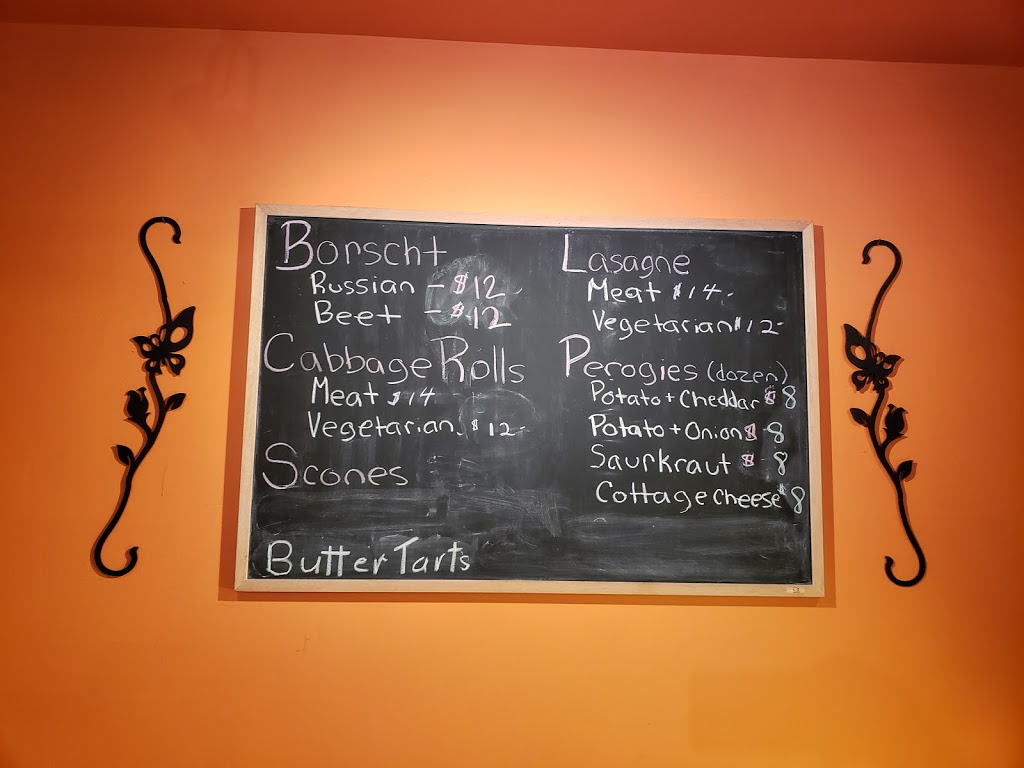 Borscht
Russian - $12
Beet - $12
Cabbage Rolls
Meat $14
Vegetarian $12
Scones
Butter Tarts
Lasagne
Meat $14
Vegetarian $12
Perogies (dozen)
Potato + Cheddar $8
Potato + Onion $8
Saurkraut $8
Cottage Cheese $8